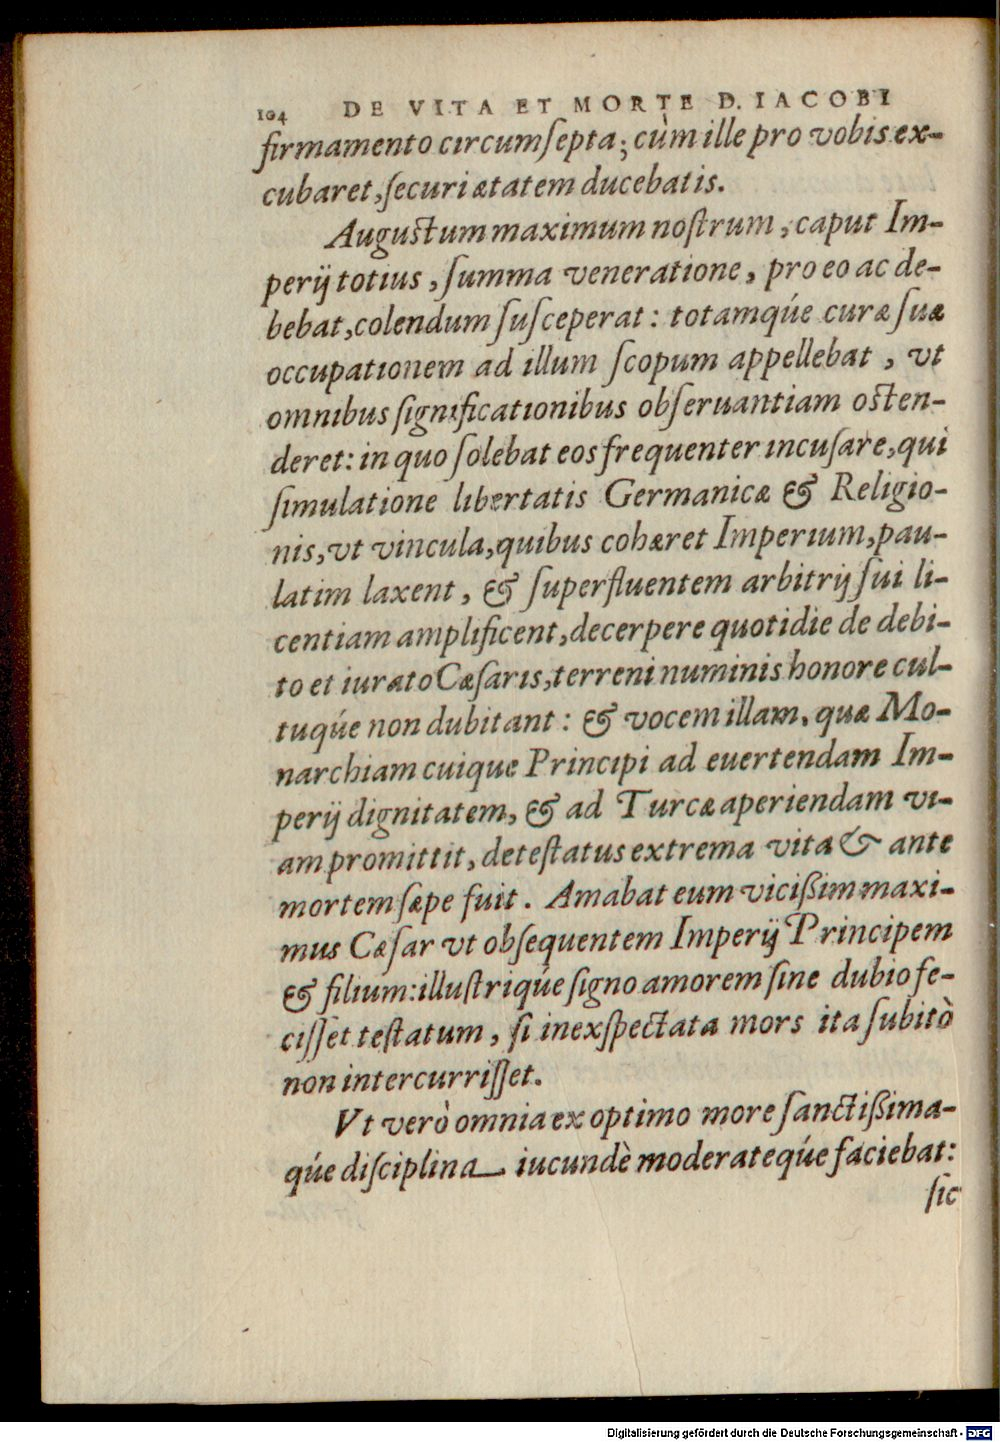 104 DE VITA ET MORTE D. IACOBI
firmamento circumſepta; cùm ille pro vobis ex-
cubaret, ſecuri ætatem ducebatis.
Auguſtum maximum noſtrum, caput Im-
perij totius, ſumma veneratione, pro eo ac de-
bebat, colendum ſuſceperat: totamqúe curæ ſuæ
occupationem ad illum ſcopum appellebat, vt
omnibus ſignificationibus obſeruantiam oſten-
deret: in quo ſolebat eos frequenter incuſare, qui
ſimulatione libertatis Germanicæ & Religio-
nis, vt vincula, quibus cohæret Imperium, pau-
latim laxent, & ſuperfluentem arbitrij ſui li-
centiam amplificent, decerpere quotidie de debi-
to et iurato Cæſaris, terreni numinis honore cul-
tuqúe non dubitant: & vocem illam, quæ Mo-
narchiam cuique Principi ad euertendam Im-
perij dignitatem, & ad Turcæ aperiendam vi-
am promittit, deteſtatus extrema vita & ante
mortem ſæpe fuit. Amabat eum viciſſim maxi-
mus Cæſar vt obſequentem Imperij Principem
& filium: illuſtriqúe ſigno amorem ſine dubio fe-
ciſſet teſtatum, ſi inexſpectata mors ita ſubitò
non intercurriſſet.
Vt verò omnia ex optimo more ſanctiſſima-
qúe diſciplina iucundè moderateqúe faciebat:
ſic
Digitalisierung gefördert durch die Deutsche Forschungsgemeinschaft - DFG